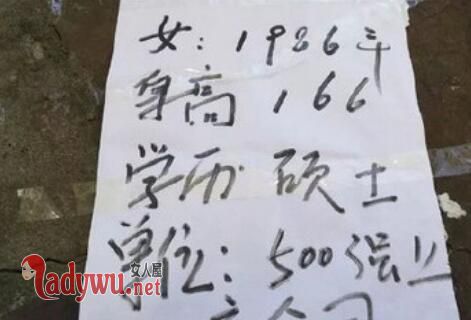 女：1986年
身高 166
学历 硕士
单位：500强业
公司
女人屋
ladywu.net